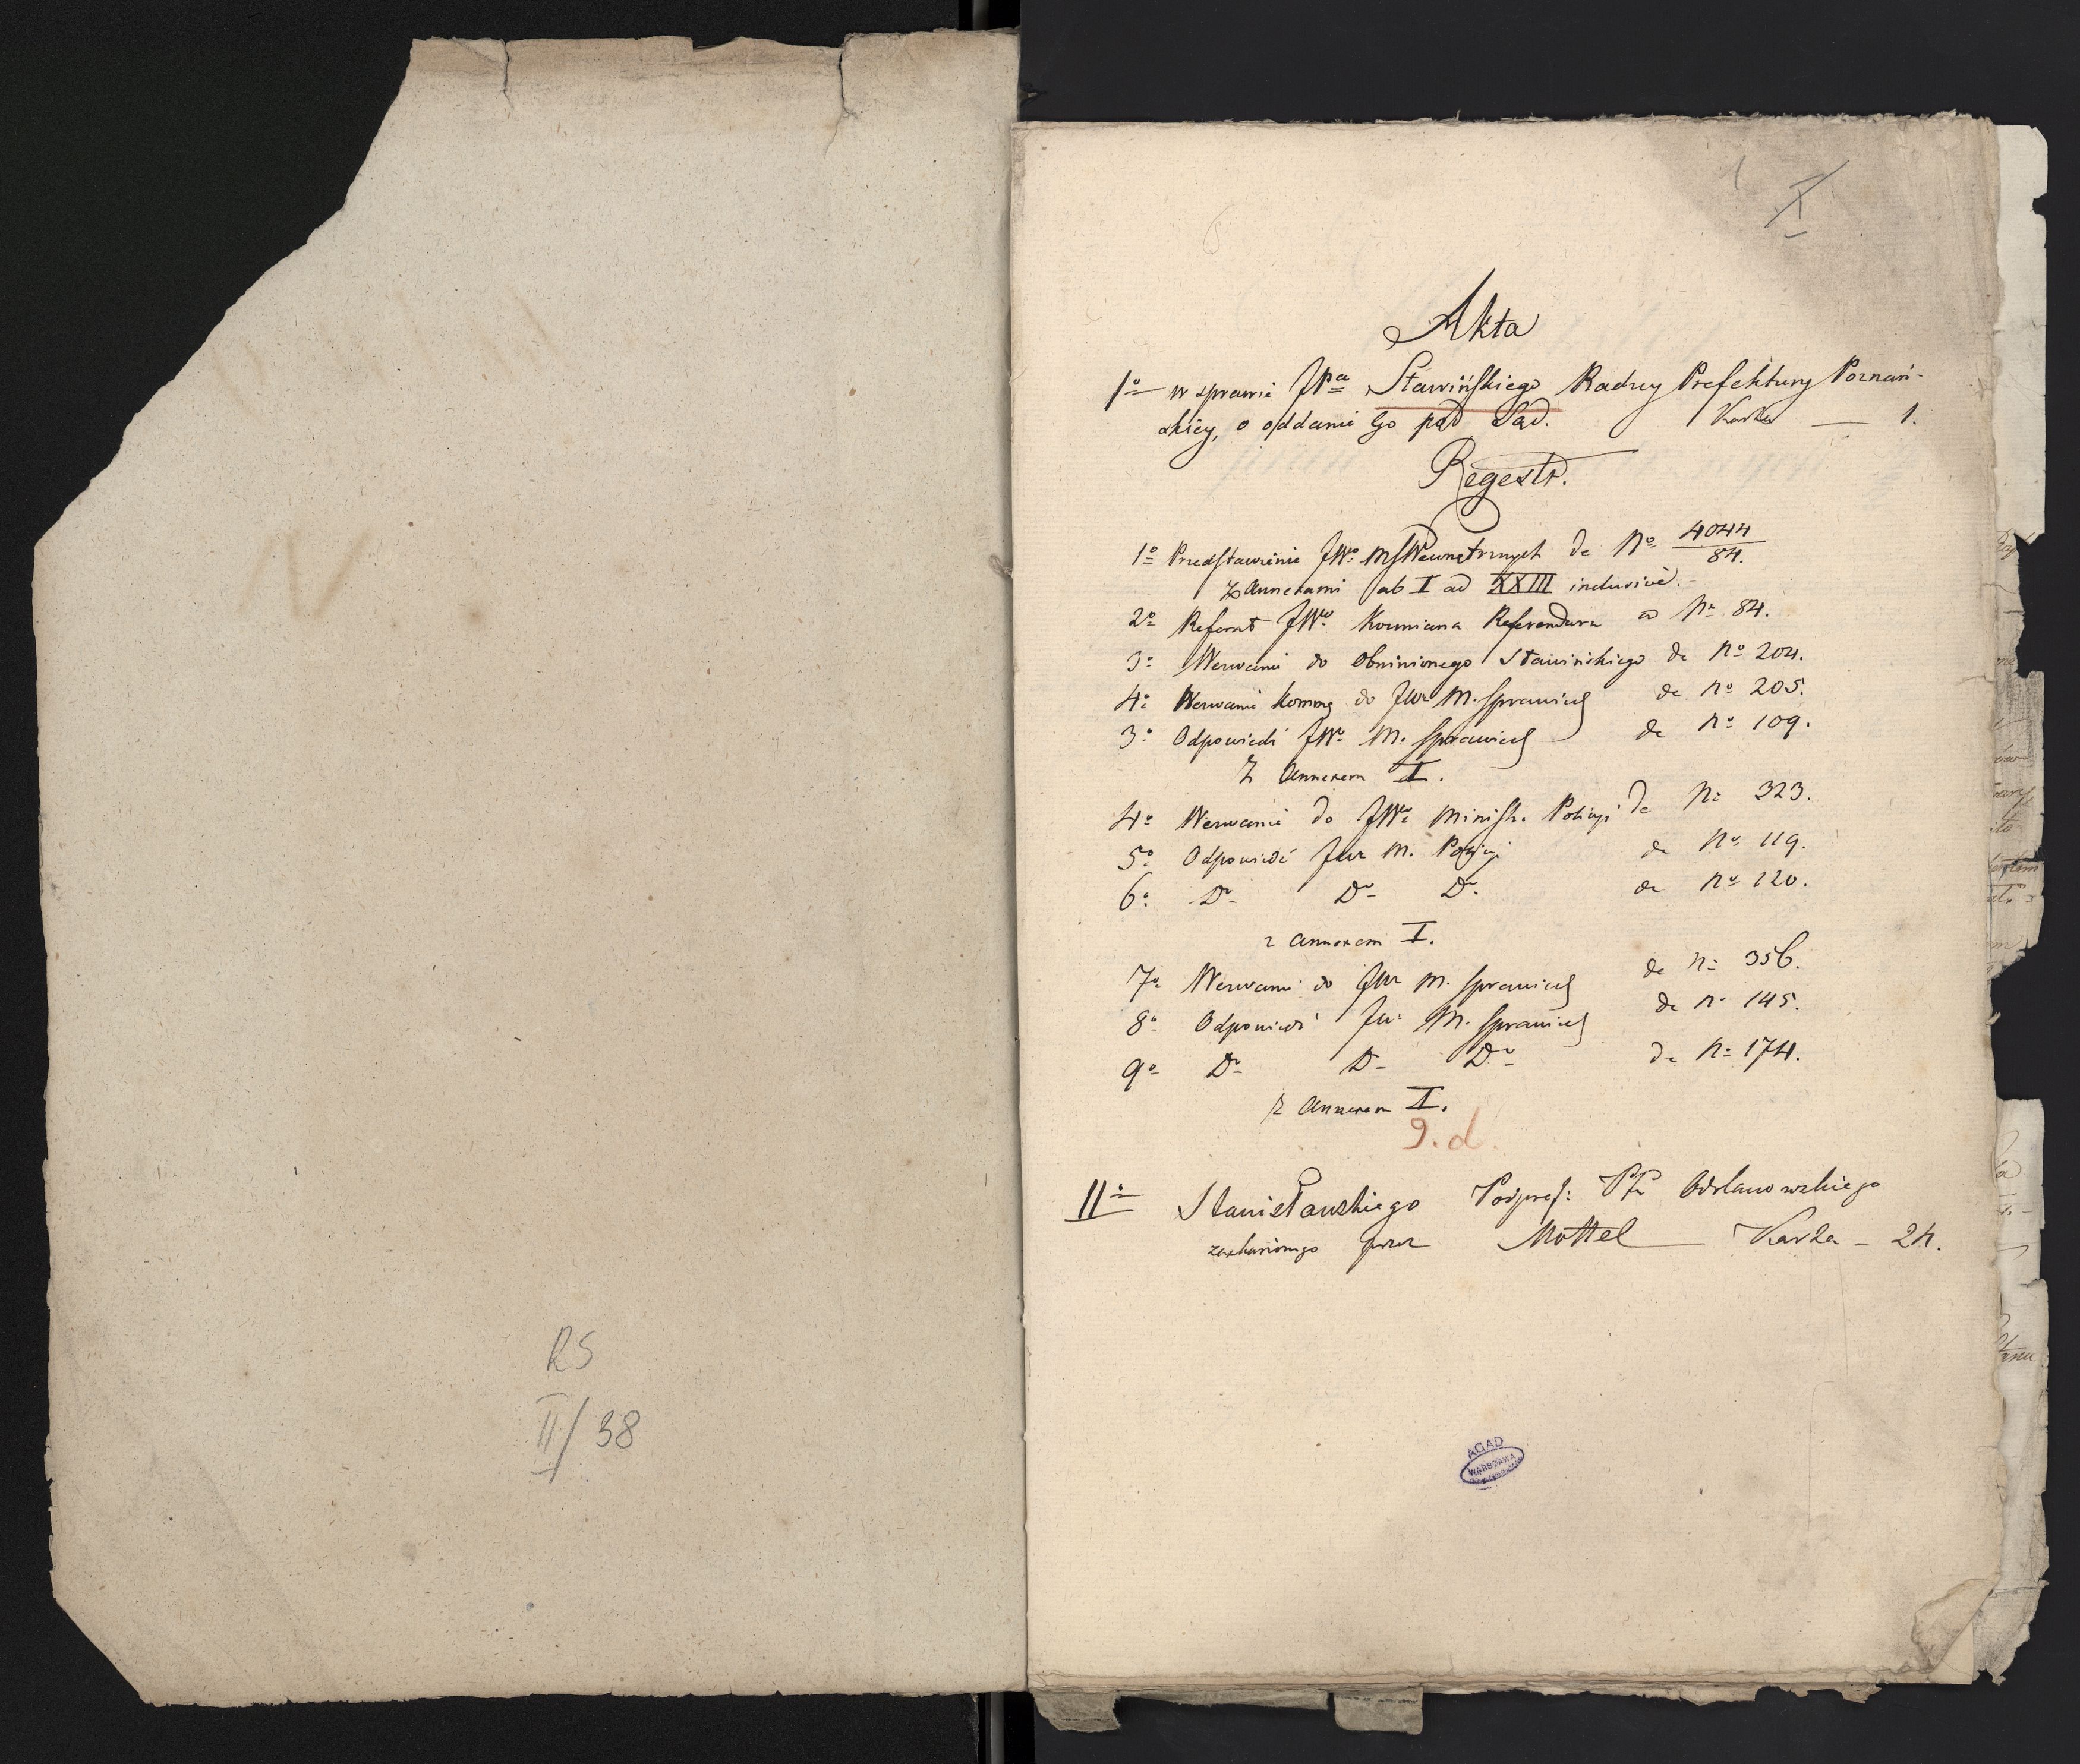 RS
II/38
X
Akta
1o w sprawie JPa Stawińskiego Radzcy Prefektury Poznań-
skiey, o oddanie Go pod Sąd. Karta — 1.
Regestr.
1o Przedstawienie JWo MSWewnętrznych de No 4044/84.
z Annexami ab I ad XXIII inclusive.
2o Referat JWo Koźmiana Referendarza a No 84.
3o Wezwanie do Obwinionego Stawińskiego de No 204.
4o Wezwanie Kommg do JWo M. Sprawiedl de No 205.
3o Odpowiedź JWo M. Sprawiedl de No 109.
Z Annexem I.
4o Wezwanie do JWo Ministr. Policyi de No 323.
5o Odpowiedź JWo M. Policyi de No 119.
6o Do Do Do de No 120.
z Annexem I.
7o Wezwanie do JWo M. Sprawiedl de No 356.
8o Odpowiedź JWo M. Sprawiedl de No 145.
9o Do Do Do de No 174.
z Annexem I.
9. d.
IIo Stanisławskiego Podpref: Ptu Odolanowskiego
zaskarżonego przez Mottel — Karta — 24.
AGAD
WARSZAWA